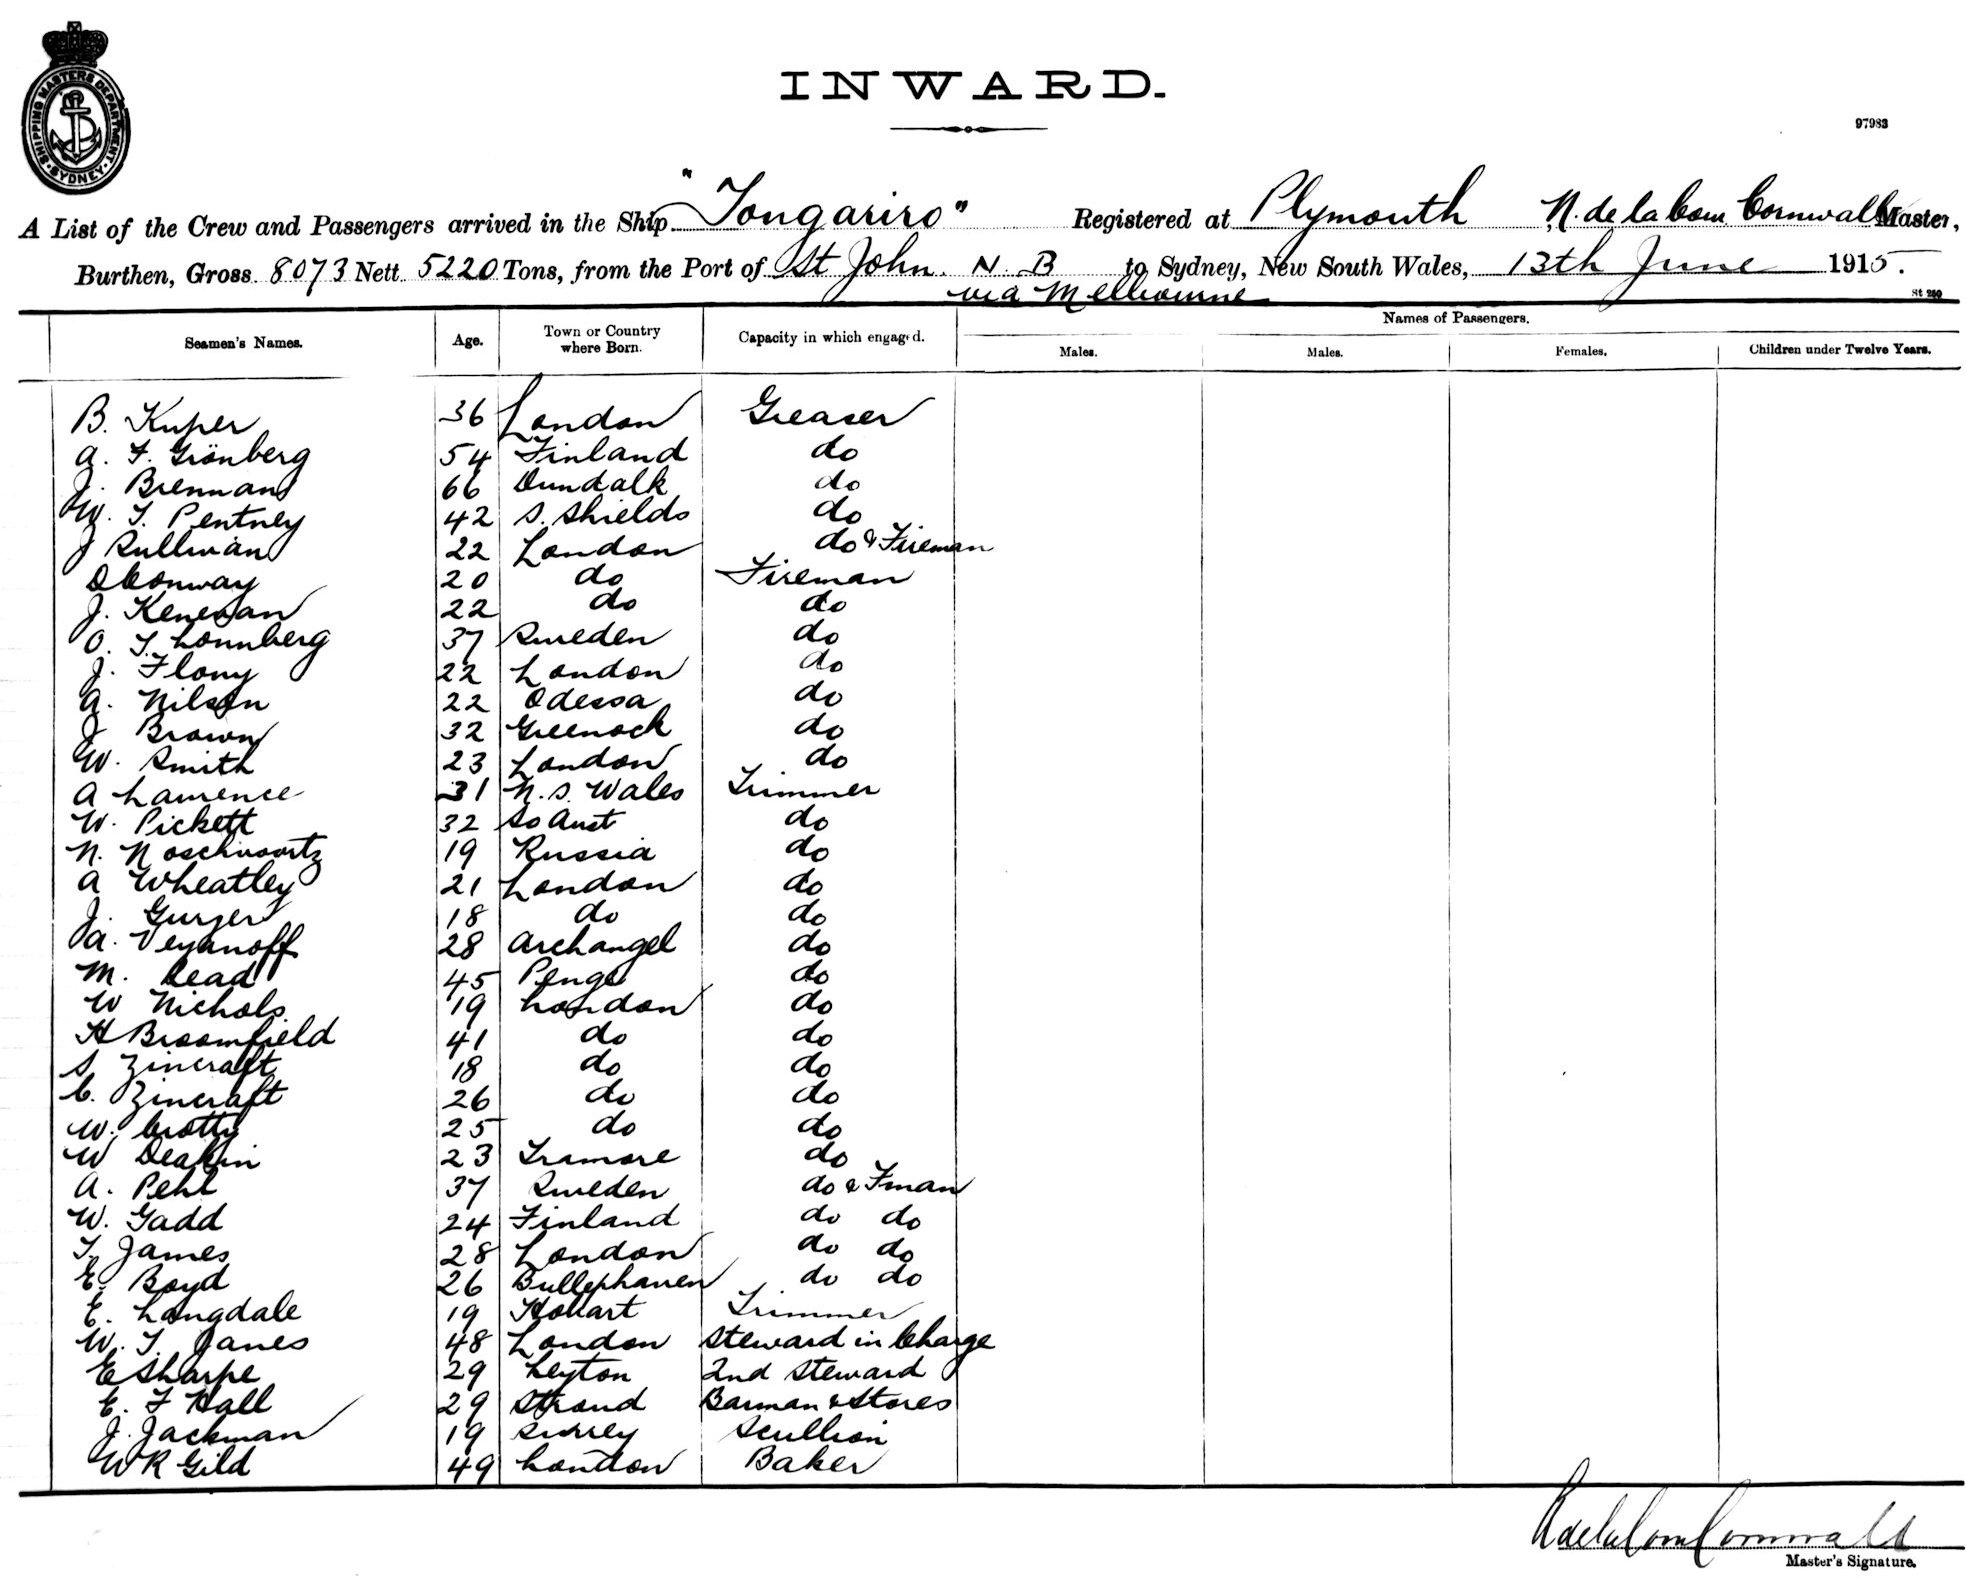 SHIPPING MASTERS DEPARTMENT. SYDNEY
INWARD.
97983
A List of the Crew and Passengers arrived in the Ship "Tongariro" Registered at Plymouth N. de la Cour Cornwall Master,
Burthen, Gross 8073 Nett 5220 Tons, from the Port of St John. N. B to Sydney, New South Wales, 13th June 1915.
via Melbourne
St 290
Seamen's Names. Age. Town or Country where Born. Capacity in which engaged. Names of Passengers.
Males. Males. Females. Children under Twelve Years.
B. Kuper 36 London Greaser
A. F. Grönberg 54 Finland do
J. Brennan 66 Dundalk do
W. T. Pentney 42 S. Shields do
J Sullivan 22 London do & Fireman
D Conway 20 do Fireman
J. Kenesan 22 do do
O. T. Lonnberg 37 Sweden do
J. Flony 22 London do
A. Nilson 22 Odessa do
J Brown 32 Greenock do
W. Smith 23 London do
A Lawrence 31 N. S. Wales Trimmer
W. Pickett 32 So Aust do
N. Noschwartz 19 Russia do
A Wheatley 21 London do
J. Gurzer 18 do do
A. Veyanoff 28 Archangel do
M. Lead 45 Penge do
W Nichols 19 London do
H Broomfield 41 do do
S. Zincraft 18 do do
C. Zincraft 26 do do
W. Crotty 25 do do
W Deakin 23 Tramore do
A. Pehl 37 Sweden do & Fman
W. Gadd 24 Finland do do
T. James 28 London do do
E. Boyd 26 do do
E. Langdale 19 Hobart Trimmer
W. T. Janes 48 London Steward in Charge
E Sharpe 29 Leyton 2nd Steward
E. F Hall 29 Strand Barman & Stores
J. Jackman 19 Surrey Scullion
W R Gild 49 London Baker
N de la Cour Cornwall
Master's Signature.